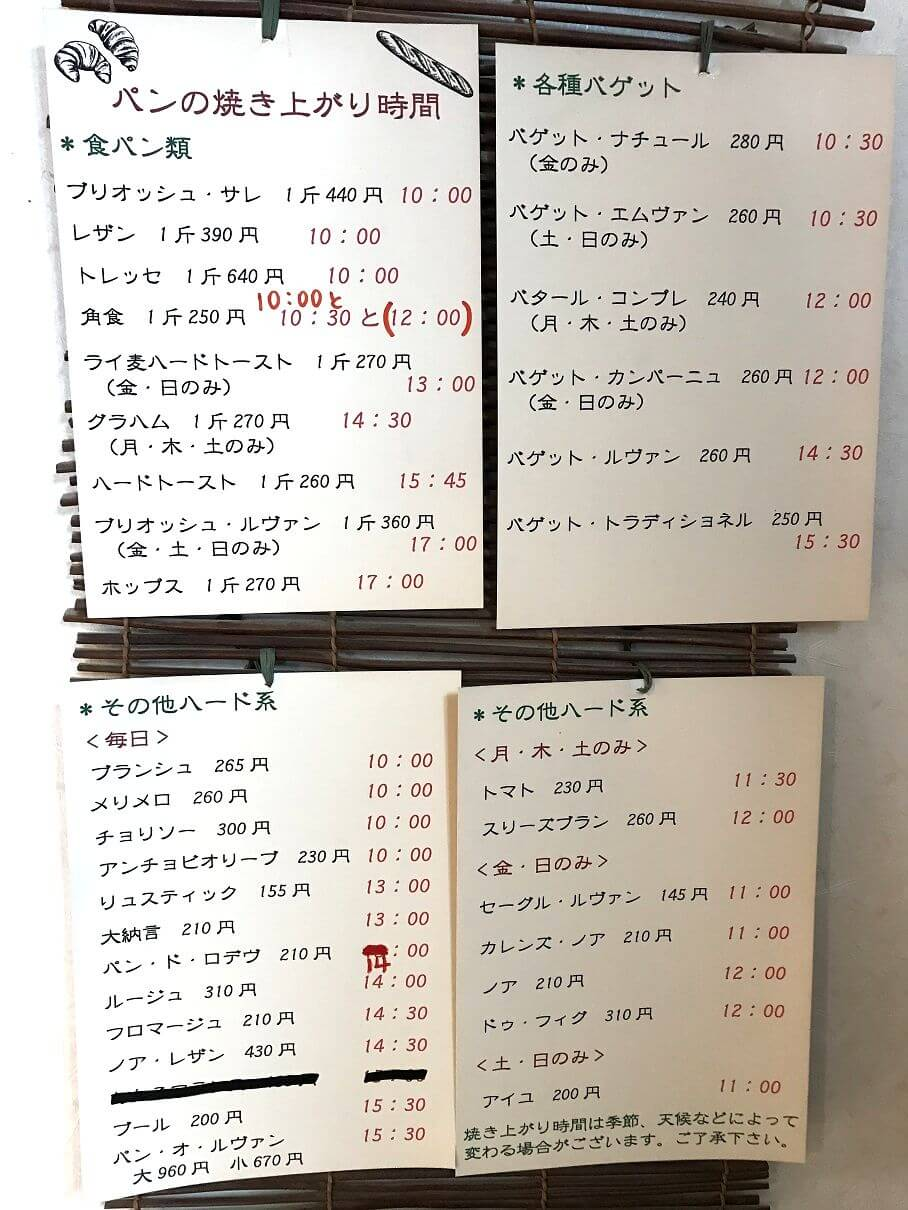 パンの焼き上がり時間
*食パン類
ブリオッシュ・サレ 1斤440円 10:00
レザン 1斤390円 10:00
トレッセ 1斤640円 10:00
10:00と
角食 1斤250円 10:30と(12:00)
ライ麦ハードトースト 1斤270円
(金・日のみ) 13:00
グラハム 1斤270円 14:30
(月・木・土のみ)
ハードトースト 1斤260円 15:45
ブリオッシュ・ルヴァン 1斤360円
(金・土・日のみ) 17:00
ホップス 1斤270円 17:00
*各種バゲット
バゲット・ナチュール 280円 10:30
(金のみ)
バゲット・エムヴァン 260円 10:30
(土・日のみ)
バタール・コンプレ 240円 12:00
(月・木・土のみ)
バゲット・カンパーニュ 260円 12:00
(金・日のみ)
バゲット・ルヴァン 260円 14:30
バゲット・トラディショネル 250円
15:30
*その他ハード系
<毎日>
ブランシュ 265円 10:00
メリメロ 260円 10:00
チョリソー 300円 10:00
アンチョビオリーブ 230円 10:00
リュスティック 155円 13:00
大納言 210円 13:00
パン・ド・ロデヴ 210円 14:00
ルージュ 310円 14:00
フロマージュ 210円 14:30
ノア・レザン 430円 14:30
ブール 200円 15:30
パン・オ・ルヴァン 15:30
大960円 小670円
*その他ハード系
<月・木・土のみ>
トマト 230円 11:30
スリーズブラン 260円 12:00
<金・日のみ>
セーグル・ルヴァン 145円 11:00
カレンズ・ノア 210円 11:00
ノア 210円 12:00
ドゥ・フィグ 310円 12:00
<土・日のみ>
アイユ 200円 11:00
焼き上がり時間は季節、天候などによって
変わる場合がございます。ご了承下さい。